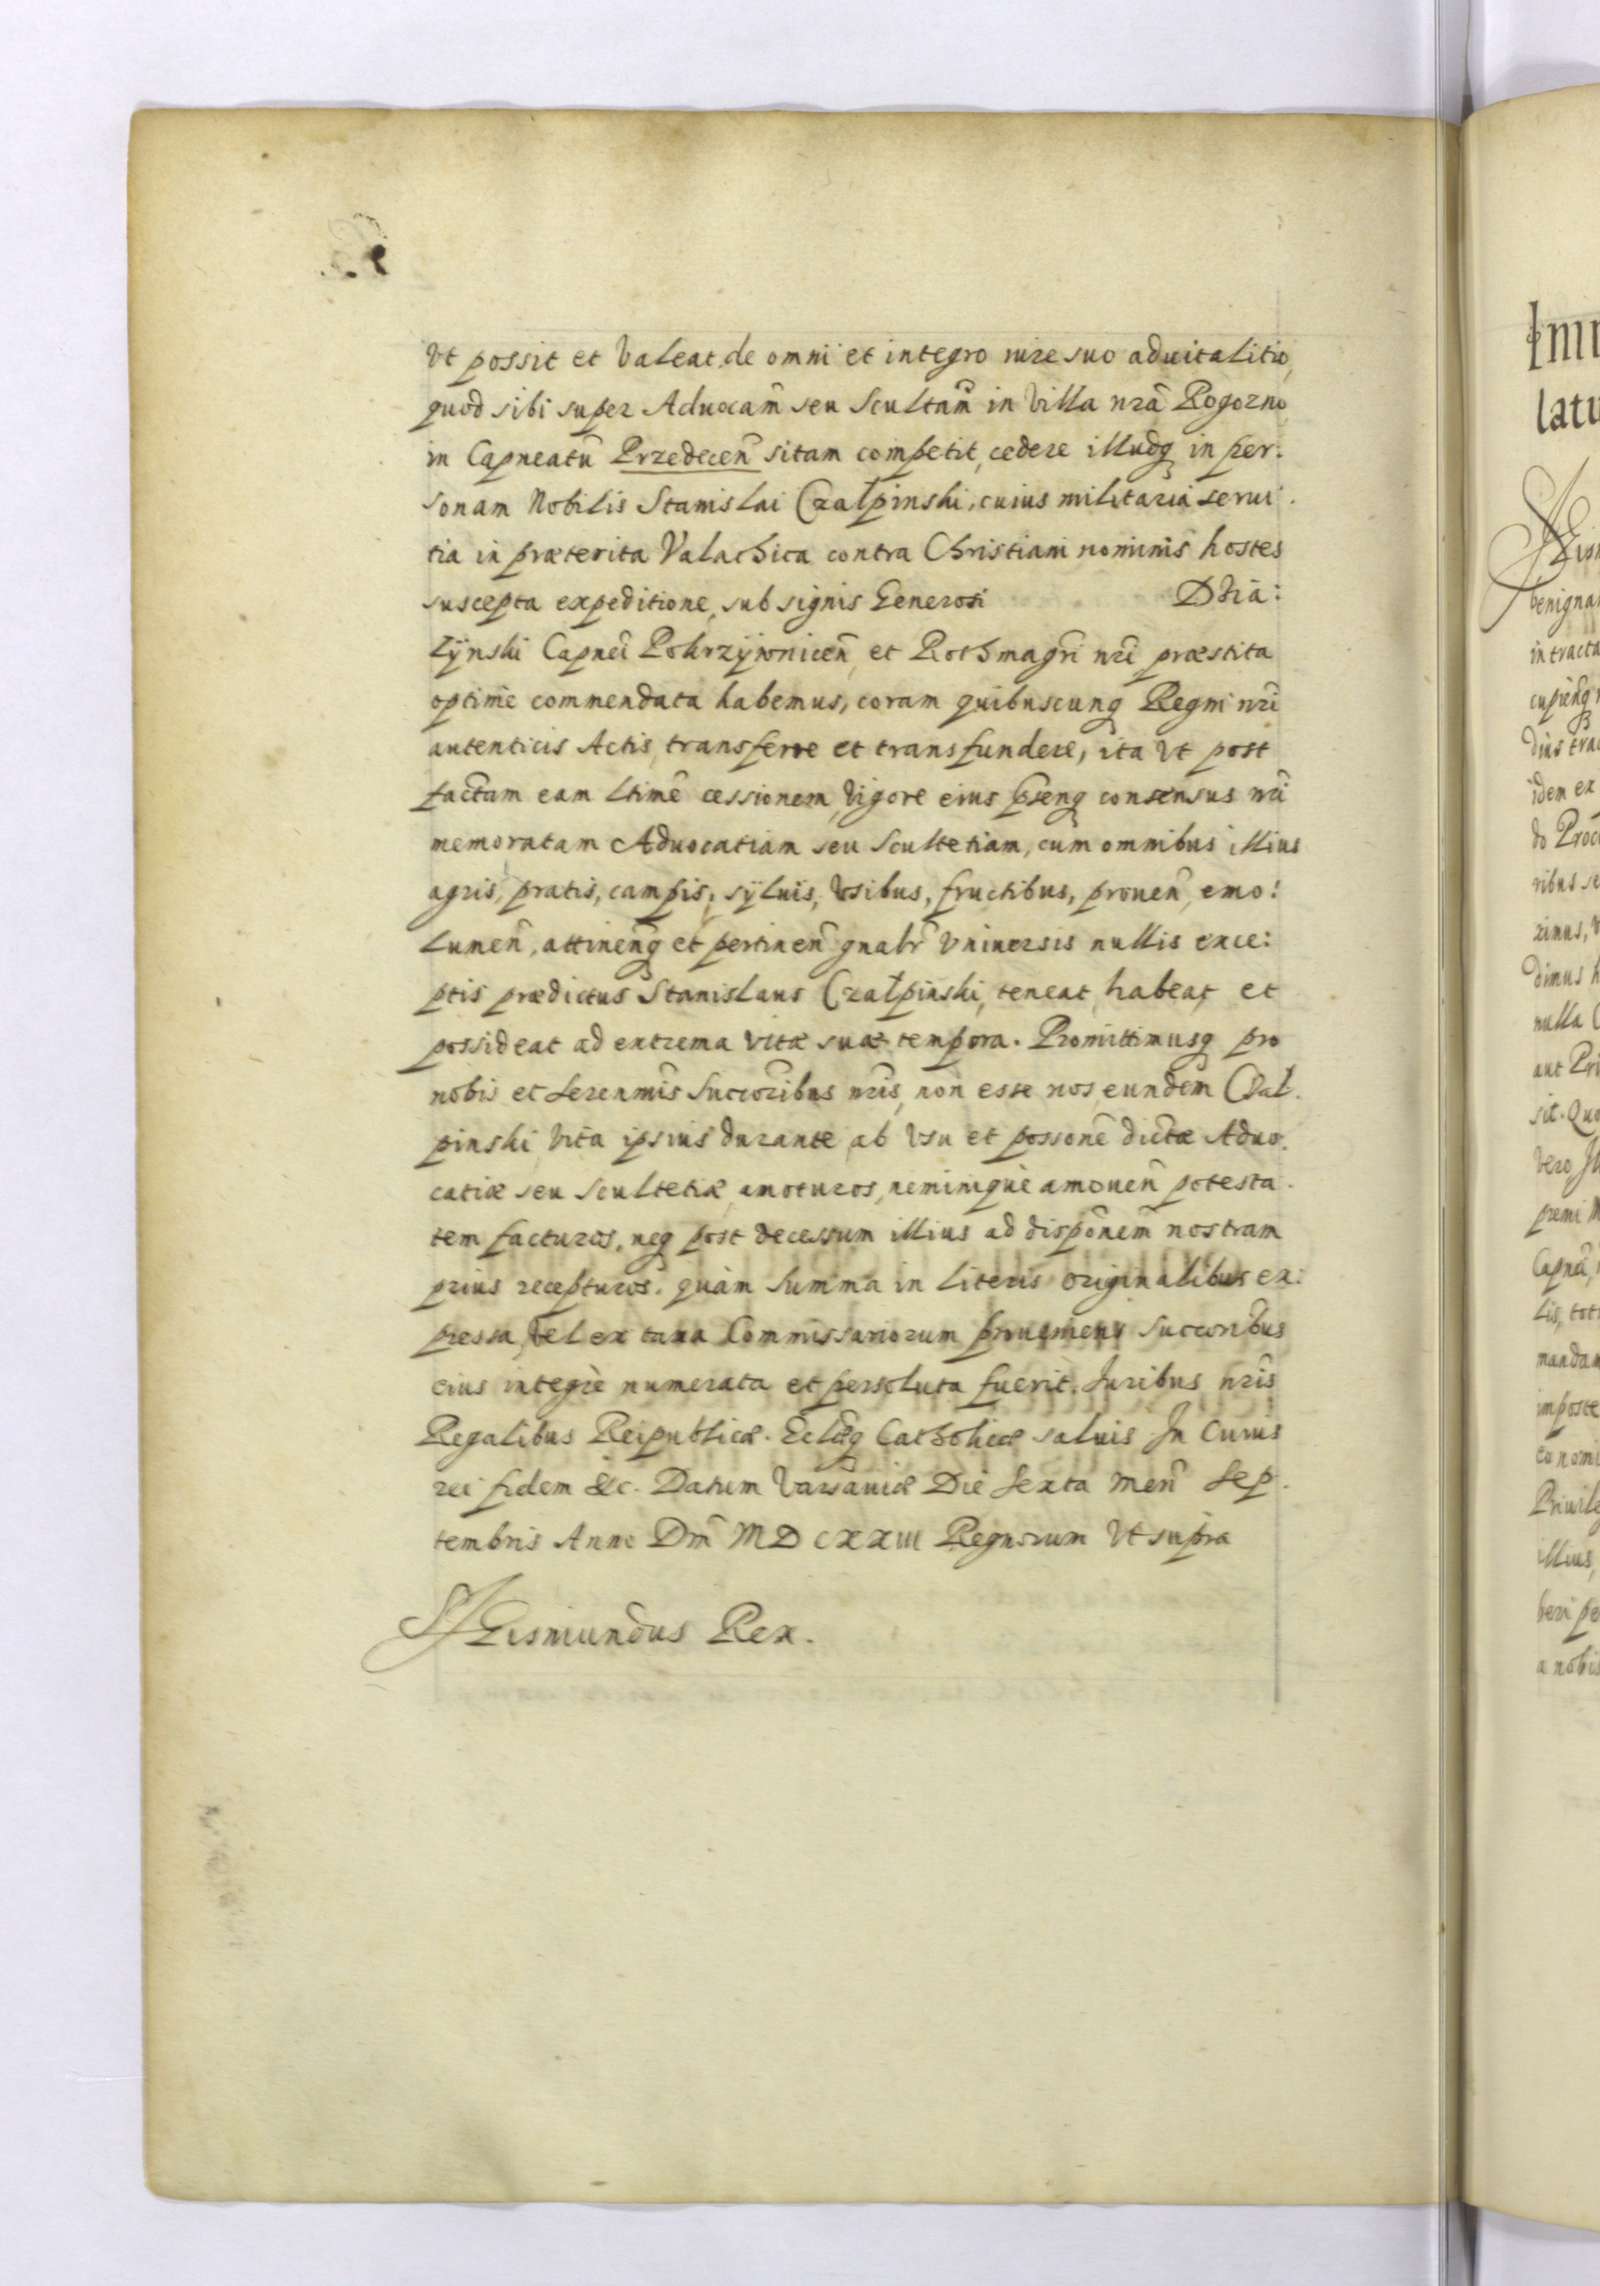 Vt possit et Valeat, de omni et integro iure suo aduitalitio,
quod sibi super Aduocam̃ seu Scultam̃ in Villa nrã Rogozno
in Capneatũ Przedecen̄ sitam competit, cedere illudq in per:
sonam Nobilis Stanislai Czałpinski, cuius militaria serui
tia in præterita Valachica contra Christiani nominis hostes
suscepta expeditione, sub signis Generosi Dzia:
łÿnski Capnei Pokrzÿwnicen̄ et Rothmagr̃i nr̃i præstita
optimè commendata habemus, coram quibuscunq Regni nr̃i
autenticis Actis, transferre et transfundere, ita Vt post
factam eam ltimẽ cessionem, Vigore eius psenq consensus nr̃i
memoratam Aduocatiam seu Scultetiam, cum omnibus illius
agris, pratis, campis, sÿluis, Vsibus, fructibus, prouen̄, emo:
lumen̄, attinen̄q et pertinen̄ gnalr̃ Vniuersis nullis exce:
ptis prædictus Stanislaus Czałpinski, teneat, habeat, et
possideat ad extrema vitæ suæ tempora. Promittimusq pro
nobis et Serenmis Succoribus nr̃is, non esse nos eundem Czał.
pinski, Vita ipsius durante, ab Vsu et possonẽ dictæ Aduo.
catiæ seu Scultetiæ, amoturos, neminiquè amouen̄ potesta.
tem facturos, neq post decessum illius ad disponem̃ nostram
prius recepturos, quàm Summa in literis originalibus ex:
pressa, vel ex taxa Commissariorum proueniens Succoribus
eius integrè numerata et persoluta fuerit. Juribus nr̃is
Regalibus Reipublicæ. Eclæq Catholicæ saluis In Cuius
rei fidem &c. Datum Varsauiæ Die Sexta Men̄ Sep.
tembris Anno Dni MDCXXIII Regnorum Vt supra
Sigismundus Rex.